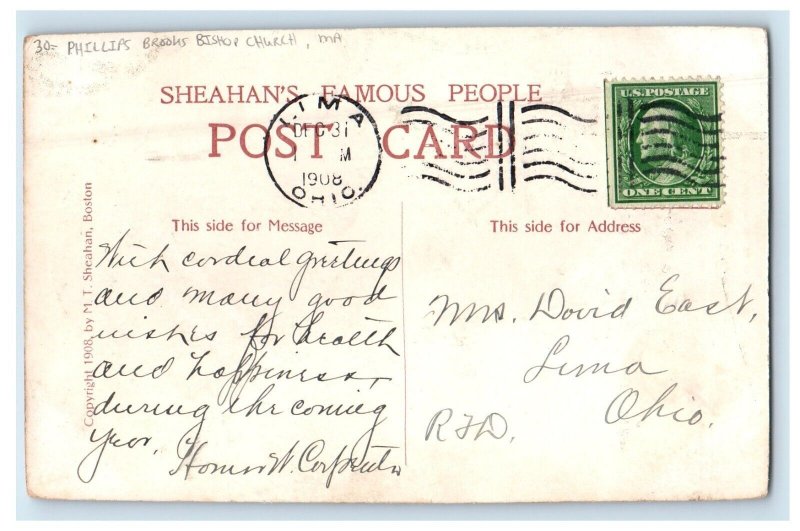 30- PHILLIPS BROOKS BISHOP CHURCH, MA
SHEAHAN'S FAMOUS PEOPLE
POST CARD
LIMA
DEC 31
1 M
1908
OHIO.
U.S. POSTAGE
ONE CENT
This side for Message
This side for Address
Copyright 1908, by M. T. Sheahan, Boston
With cordial greetings
and many good
wishes for health
and happiness,
during the coming
year,
Homer W. Carpenter
Mrs. David East,
Lima
Ohio.
RFD.